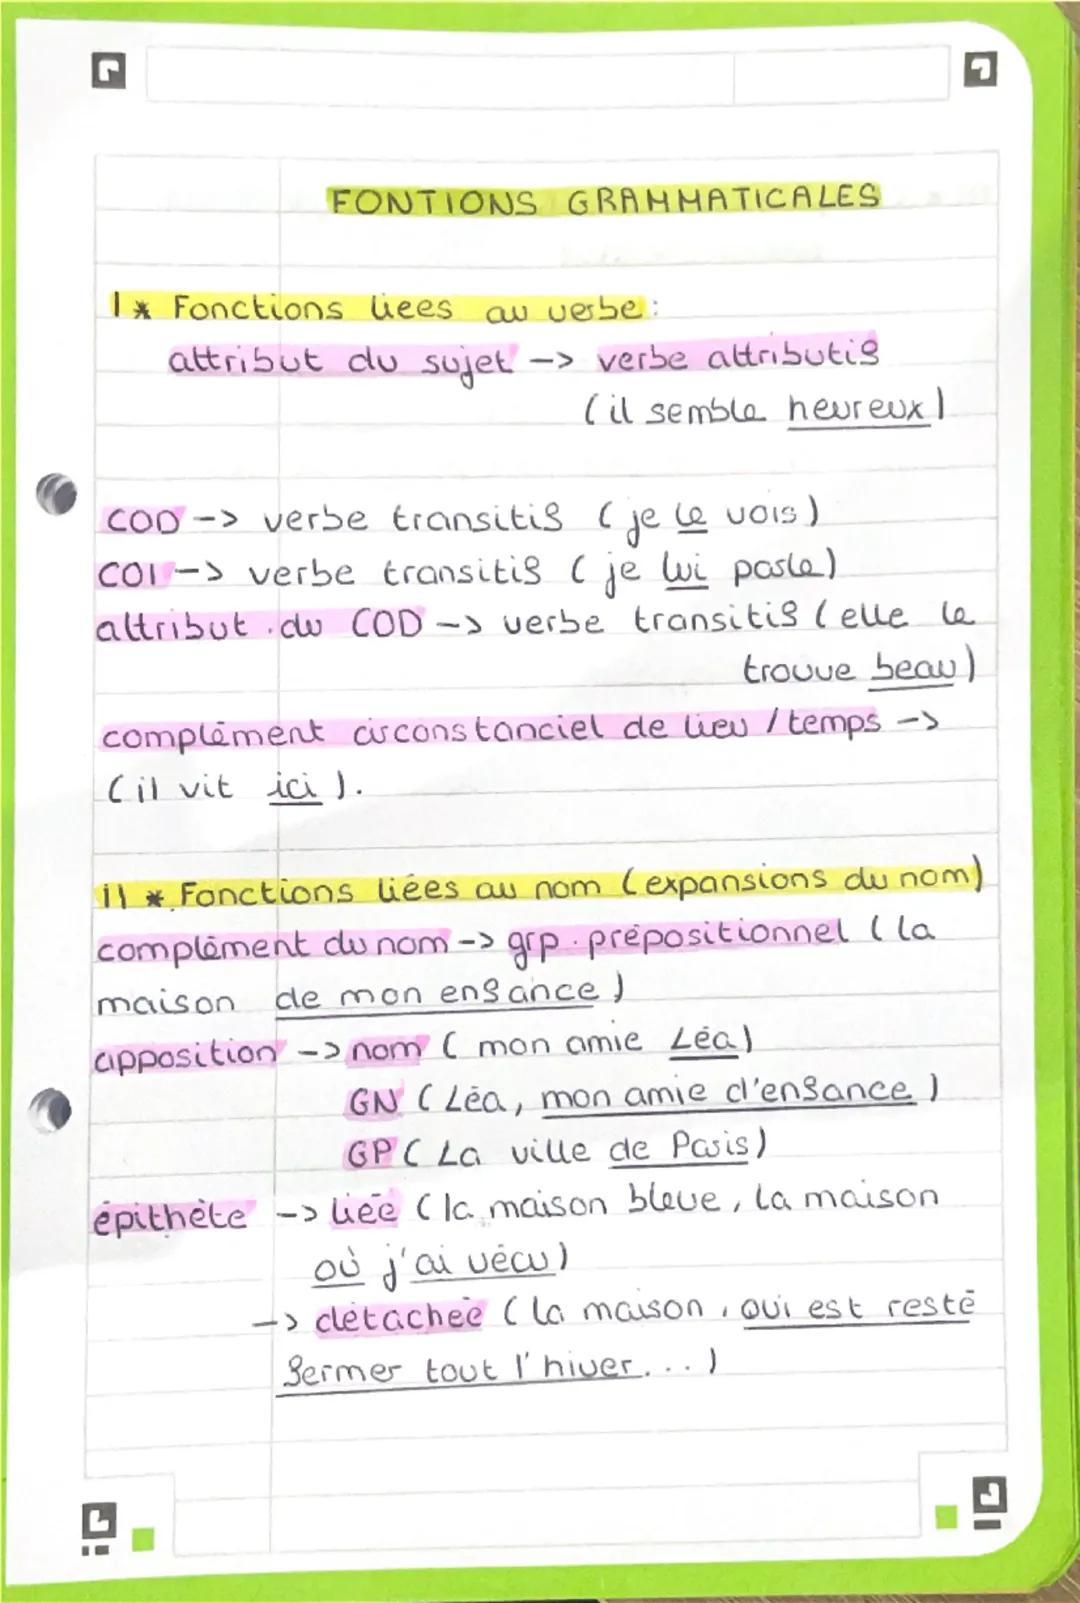 FONTIONS GRAMMATICALES
I * Fonctions liees au verbe :
attribut du sujet -> verbe attributif
(il semble heureux)
COD -> verbe transitif (je le vois)
COI -> verbe transitif (je lui parle)
attribut du COD -> verbe transitif (elle le
trouve beau)
complément circonstanciel de lieu / temps ->
(il vit ici).
II * Fonctions liées au nom (expansions du nom)
complément du nom -> grp. prépositionnel (la
maison de mon enfance)
apposition -> nom (mon amie Léa)
GN (Léa, mon amie d'enfance)
GP (La ville de Paris)
épithète -> liée (la maison bleue, la maison
où j'ai vécu)
-> détachée (la maison, qui est resté
fermer tout l'hiver...)